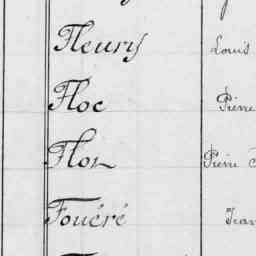 Fleury Louis
Floc Pierre
Flon Pierre
Fouéré Jean